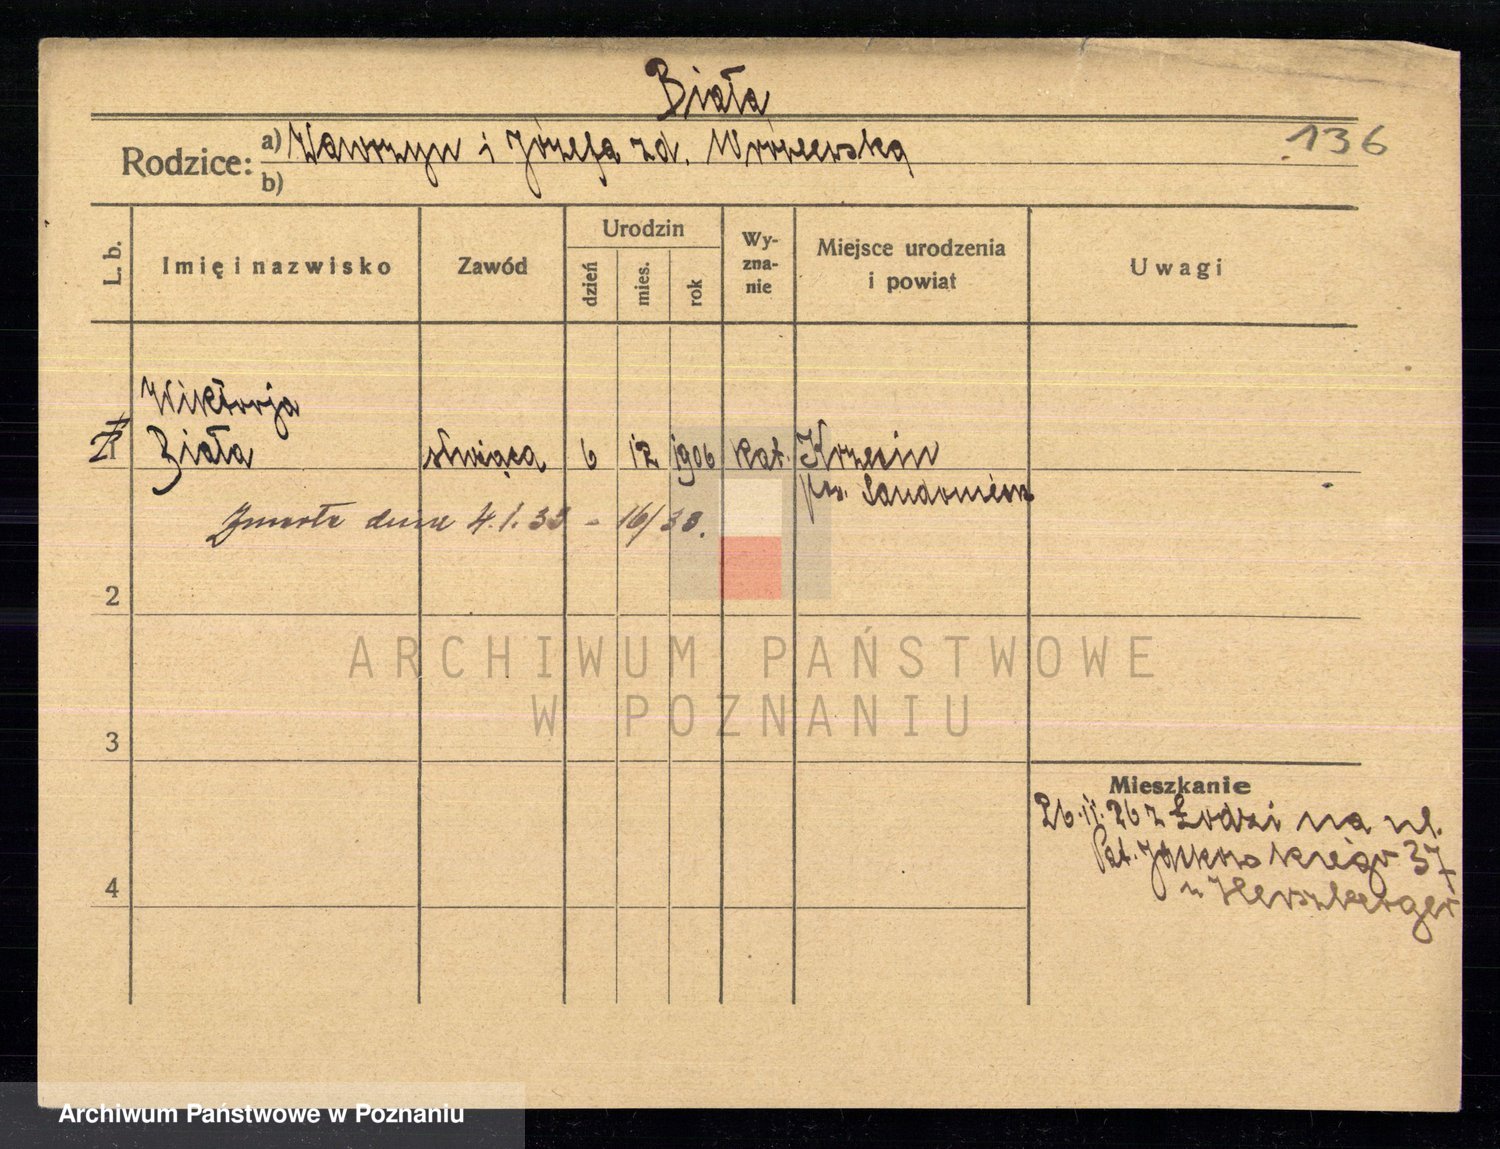 Biała
136
Rodzice: a) Wawrzyn i Józefa zd. Wróżewska
b)
L. b.
Imię i nazwisko
Zawód
Urodzin
dzień
mies.
rok
Wy-
zna-
nie
Miejsce urodzenia
i powiat
Uwagi
Wiktorja
1 Biała służąca 6 12 1906 kat. Krzcin
pow. Sandomierz
Zmarła dnia 4.1.33 - 16/33.
2
3
4
Mieszkanie
26.11.26 z Łodzi na ul.
Pat. Jackowskiego 37
u Herszberger
ARCHIWUM PAŃSTWOWE
W POZNANIU
Archiwum Państwowe w Poznaniu